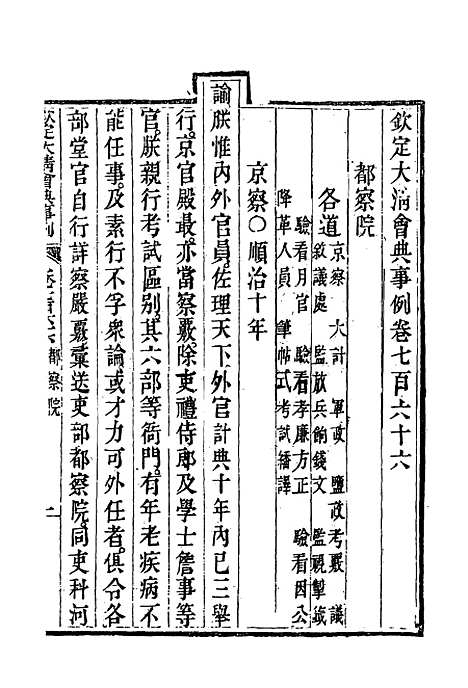 欽定大清會典事例卷七百六十六
都察院
各道 京察 大計 軍政 鹽政考覈 議
敘議處 監放兵餉錢文 監視掣籤
驗看月官 驗看孝廉方正 驗看因公
降革人員 筆帖式考試繙譯
京察〇順治十年
諭朕惟內外官員佐理天下外官計典十年內已三舉
行京官殿最亦當察覈除吏禮侍郎及學士詹事等
官朕親行考試區別其六部等衙門有年老疾病不
能任事及素行不孚衆論或才力可外任者俱令各
部堂官自行詳察嚴覈彙送吏部都察院同吏科河
欽定大清會典事例 都察院 一